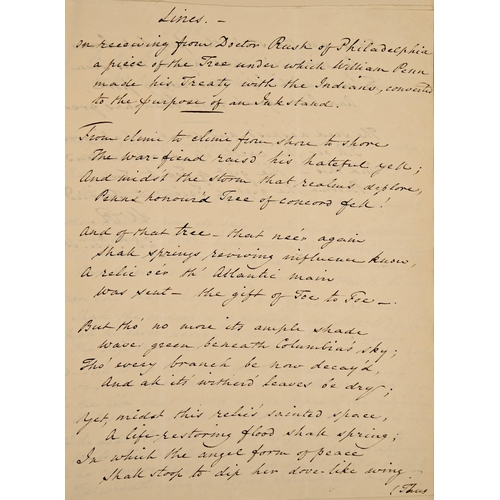 Lines. —
on receiving from Doctor Rush of Philadelphia
a piece of the Tree under which William Penn
made his Treaty with the Indians, converted
to the purpose of an Inkstand.
From clime to clime from shore to shore
The war-fiend rais'd his hateful yell;
And midst the storm that realms deplore,
Penn's honour'd Tree of concord fell!
And of that tree — that ne'er again
Shall springs reviving influence know,
A relic o'er th' Atlantic main
was sent — the gift of Foe to Foe —.
But tho' no more its ample shade
wave green beneath Columbia's sky;
Tho' every branch be now decay'd,
And all it's wither'd leaves be dry;
Yet, midst this relic's sainted space,
A life-restoring flood shall spring;
In which the angel form of peace
Shall stoop to dip her dove-like wing —
(Thus